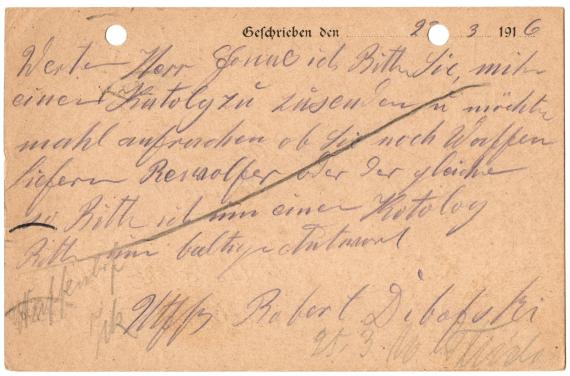 Geschrieben den 22 3 1916
Werter Herr Jonal ich Bitte Sie, mihr
einen Katolg zu zusenden u möchte
mahl anfrachen ob Sie noch Waffen
liefern Rewolfer oder der gleiche
so Bitte ich um einen Kotolog
Bitte um baltige Antwort
Uffz Robert Dibofski
25. 3.